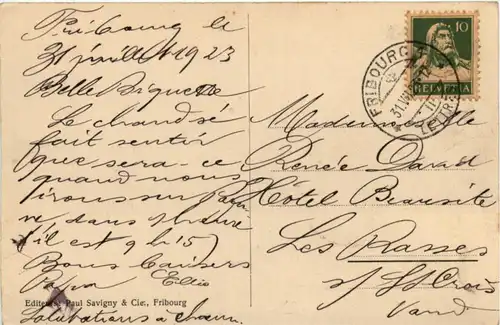 Fribourg le
31 juillet 1923
Belle Briquette
Le chaud se
fait sentir
que sera-ce
quand nous
irons sur
dans
il est 9 h 15
Bons baisers
Papa
Salutations à
Editeurs: Paul Savigny & Cie., Fribourg
10
HELVETIA
FRIBOURG 1
LETTR.
Mademoiselle
Renée David
Hôtel Beausite
Les Rasses
s/ St Croix
Vaud